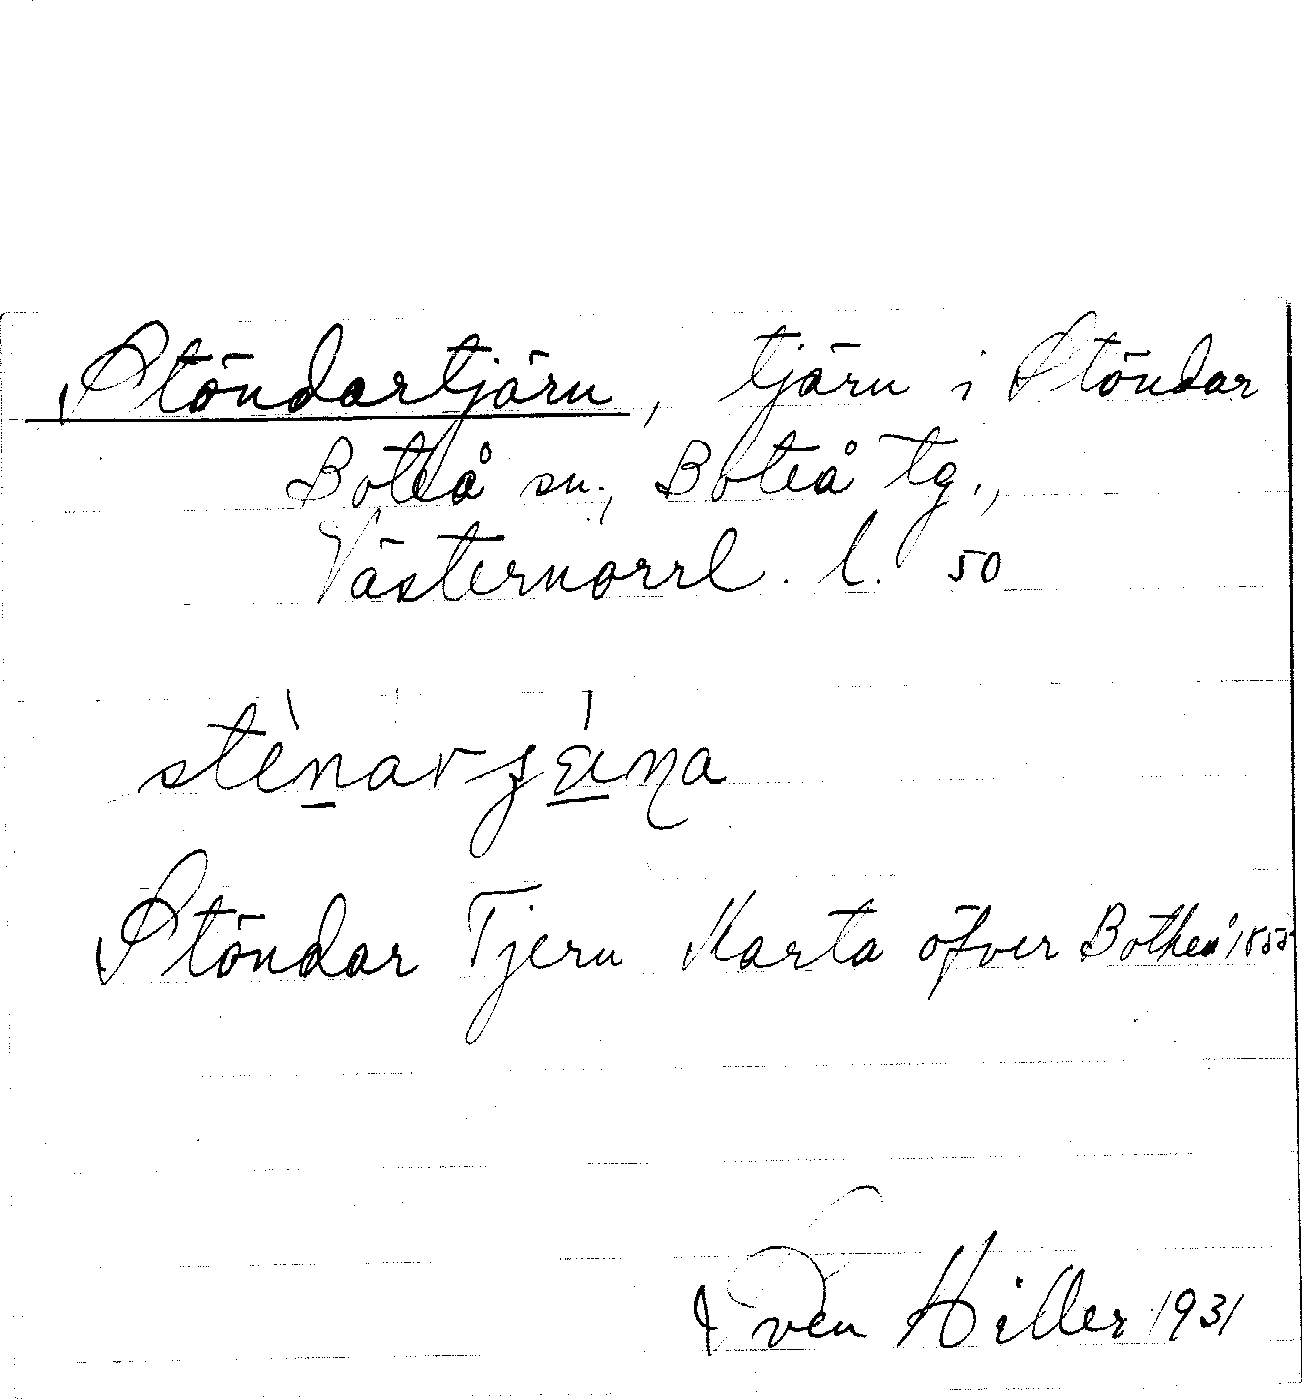 Stöndartjärn, tjärn i Stöndar
Boteå sn., Boteå tg.,
Västernorrl. l. 50
Stöndar Tjern Karta öfver Botheå 1855
Sven Hiller 1931